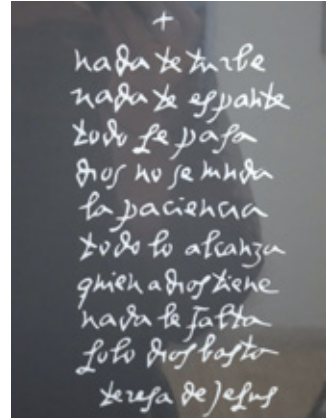 +
nada te turbe
nada te espante
todo se pasa
dios no se muda
la paciencia
todo lo alcanza
quien a dios tiene
nada le falta
solo dios basta
teresa de jesus